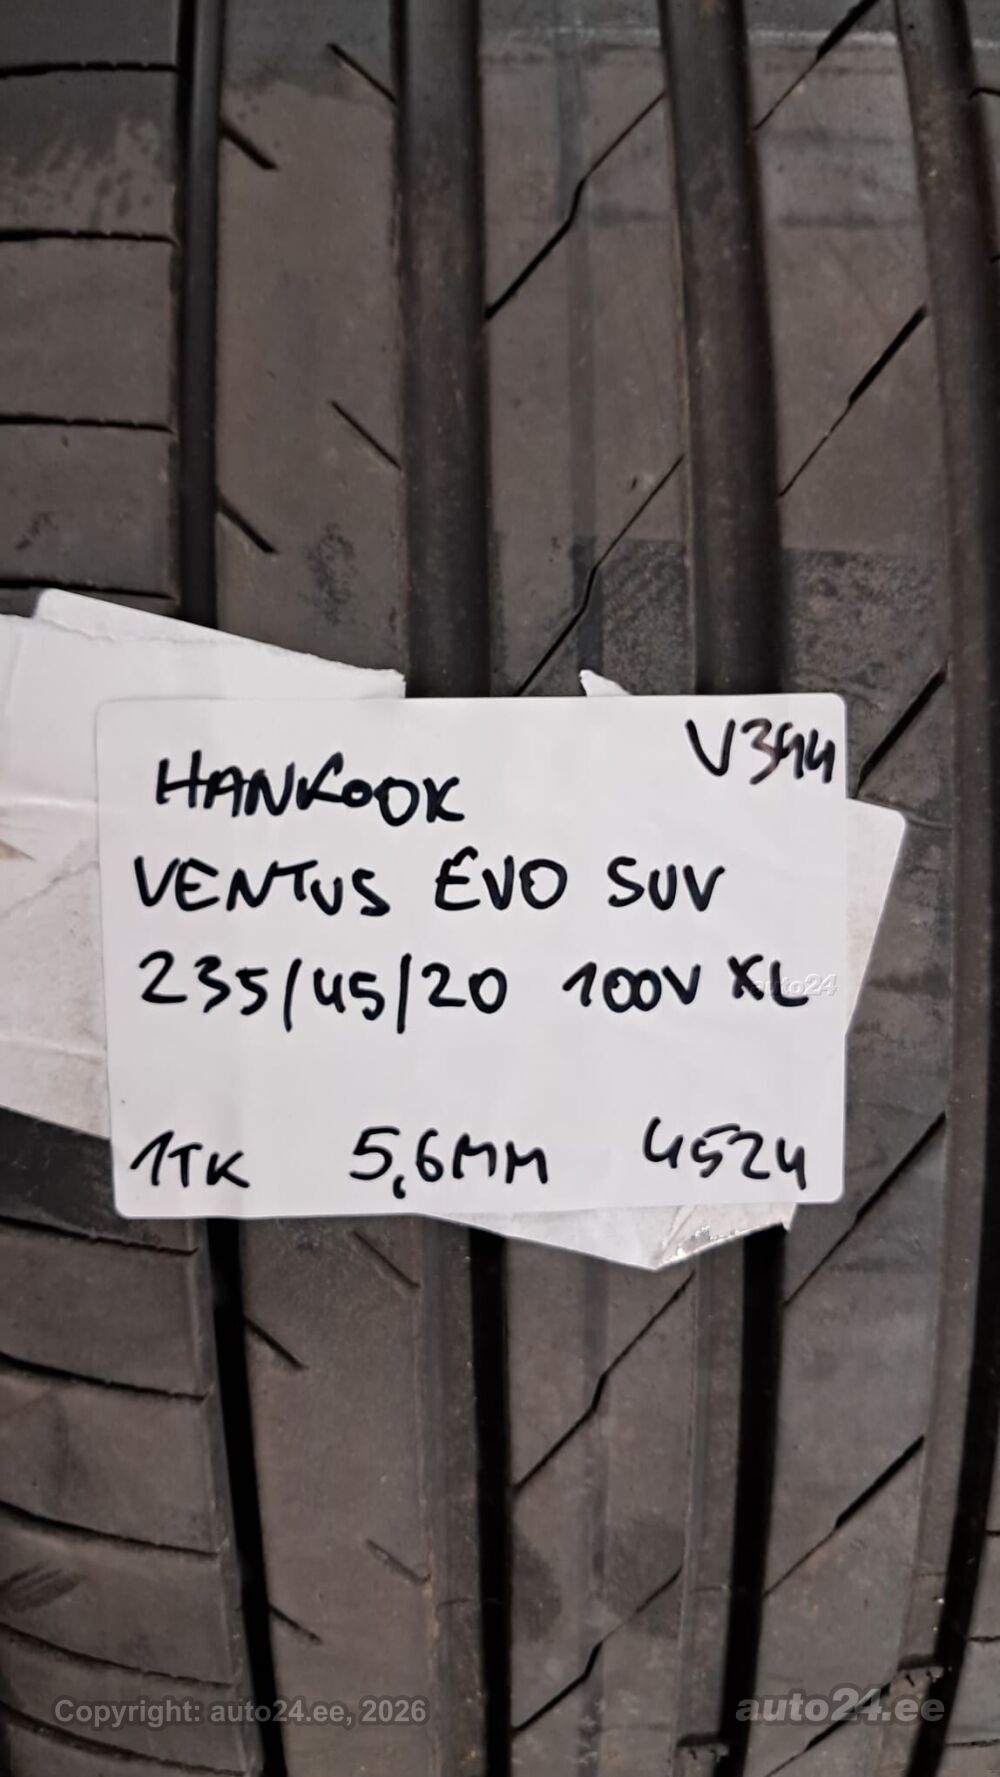 V394
HANKOOK
VENTUS EVO SUV
235/45/20 100V XL
auto24
1TK 5,6MM 4524
Copyright: auto24.ee, 2026
auto24.ee